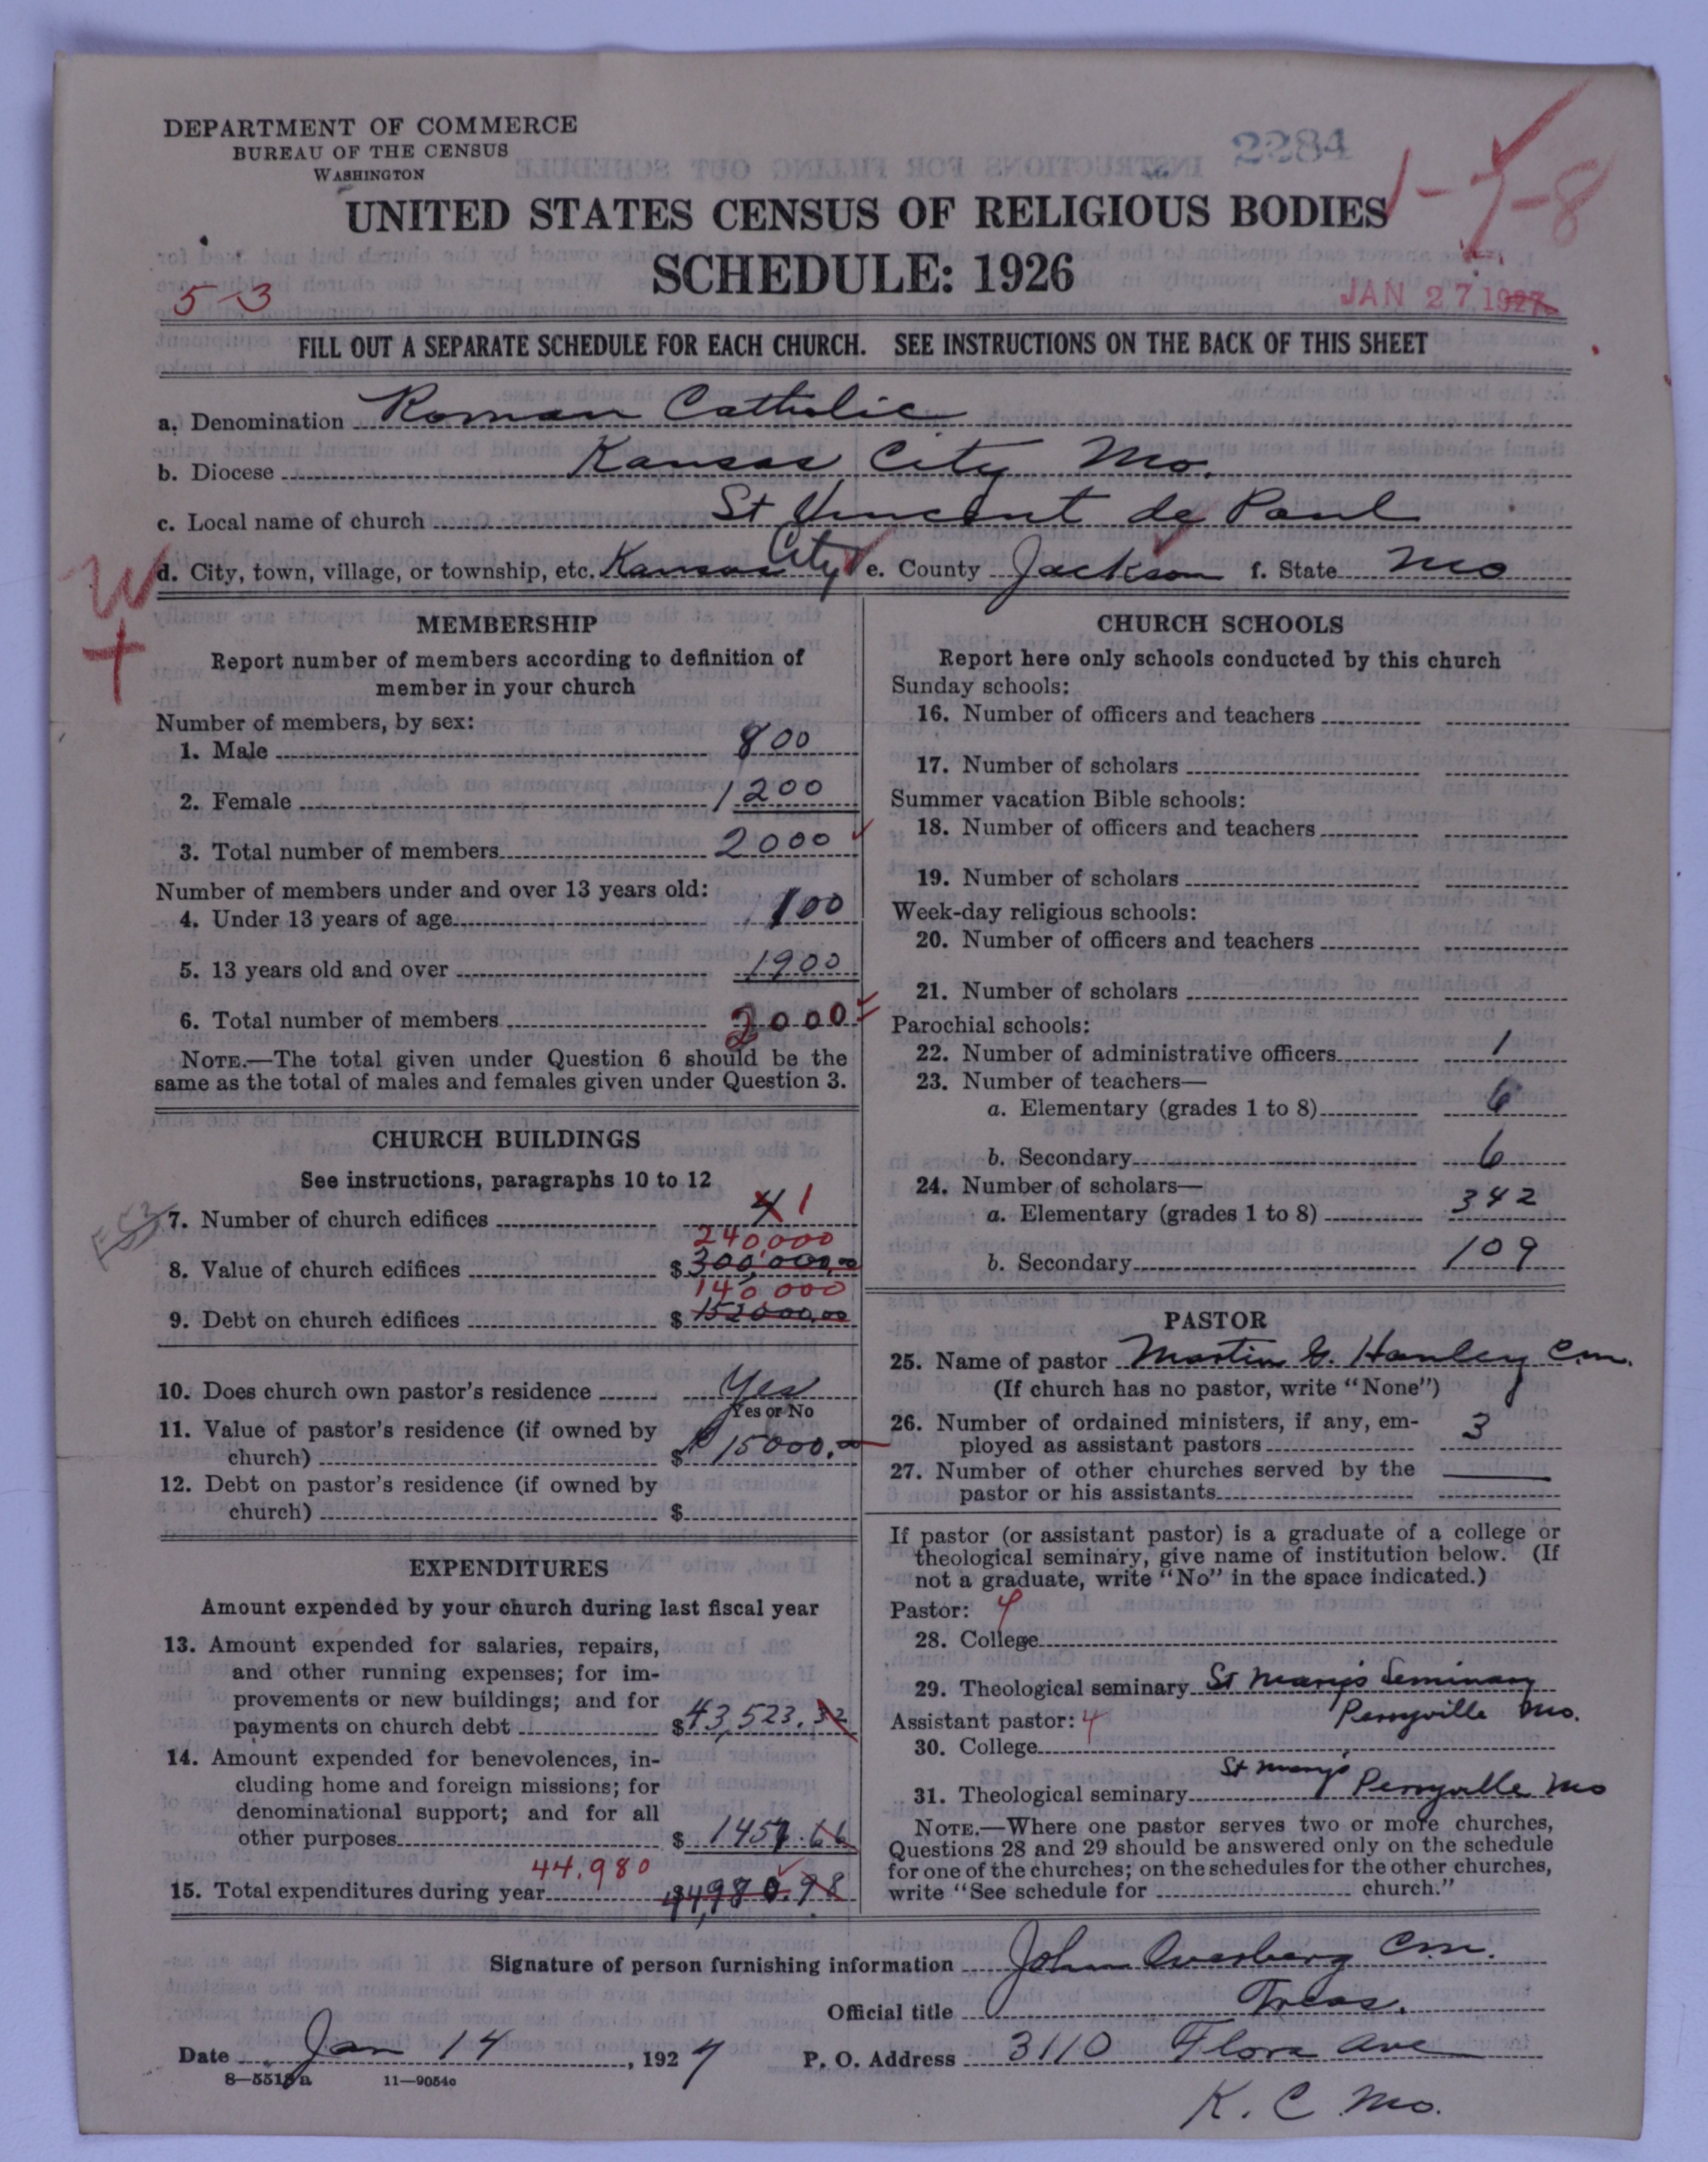 DEPARTMENT OF COMMERCE
BUREAU OF THE CENSUS
WASHINGTON
2284
1-7-8
UNITED STATES CENSUS OF RELIGIOUS BODIES
SCHEDULE: 1926
5-3
JAN 27 1927
FILL OUT A SEPARATE SCHEDULE FOR EACH CHURCH. SEE INSTRUCTIONS ON THE BACK OF THIS SHEET
a. Denomination Roman Catholic
b. Diocese Kansas City Mo.
c. Local name of church St Vincent de Paul
d. City, town, village, or township, etc. Kansas City e. County Jackson f. State Mo
MEMBERSHIP
Report number of members according to definition of
member in your church
Number of members, by sex:
1. Male 800
2. Female 1200
3. Total number of members 2000
Number of members under and over 13 years old:
4. Under 13 years of age 100
5. 13 years old and over 1900
6. Total number of members 2000
NOTE.—The total given under Question 6 should be the
same as the total of males and females given under Question 3.
CHURCH BUILDINGS
See instructions, paragraphs 10 to 12
7. Number of church edifices 4 1
240,000
8. Value of church edifices $ 300,000.00
140,000
9. Debt on church edifices $ 152000.00
10. Does church own pastor's residence Yes
Yes or No
11. Value of pastor's residence (if owned by
church) $ 15000.00
12. Debt on pastor's residence (if owned by
church) $
EXPENDITURES
Amount expended by your church during last fiscal year
13. Amount expended for salaries, repairs,
and other running expenses; for im-
provements or new buildings; and for
payments on church debt $ 43,523.32
14. Amount expended for benevolences, in-
cluding home and foreign missions; for
denominational support; and for all
other purposes $ 1457.66
44,980
15. Total expenditures during year $44,980.98
CHURCH SCHOOLS
Report here only schools conducted by this church
Sunday schools:
16. Number of officers and teachers
17. Number of scholars
Summer vacation Bible schools:
18. Number of officers and teachers
19. Number of scholars
Week-day religious schools:
20. Number of officers and teachers
21. Number of scholars
Parochial schools:
22. Number of administrative officers 1
23. Number of teachers—
a. Elementary (grades 1 to 8) 6
b. Secondary 6
24. Number of scholars—
a. Elementary (grades 1 to 8) 342
b. Secondary 109
PASTOR
25. Name of pastor Martin G. Hanley C.M.
(If church has no pastor, write "None")
26. Number of ordained ministers, if any, em-
ployed as assistant pastors 3
27. Number of other churches served by the
pastor or his assistants
If pastor (or assistant pastor) is a graduate of a college or
theological seminary, give name of institution below. (If
not a graduate, write "No" in the space indicated.)
Pastor: 4
28. College
29. Theological seminary St Mary's Seminary
Perryville Mo.
Assistant pastor: 4
30. College
31. Theological seminary St Mary's Perryville Mo
NOTE.—Where one pastor serves two or more churches,
Questions 28 and 29 should be answered only on the schedule
for one of the churches; on the schedules for the other churches,
write "See schedule for church."
Signature of person furnishing information John Overberg C.M.
Official title Treas.
Date Jan 14, 1927 P. O. Address 3110 Flora Ave
K. C. Mo.
8—5518a 11—9054c